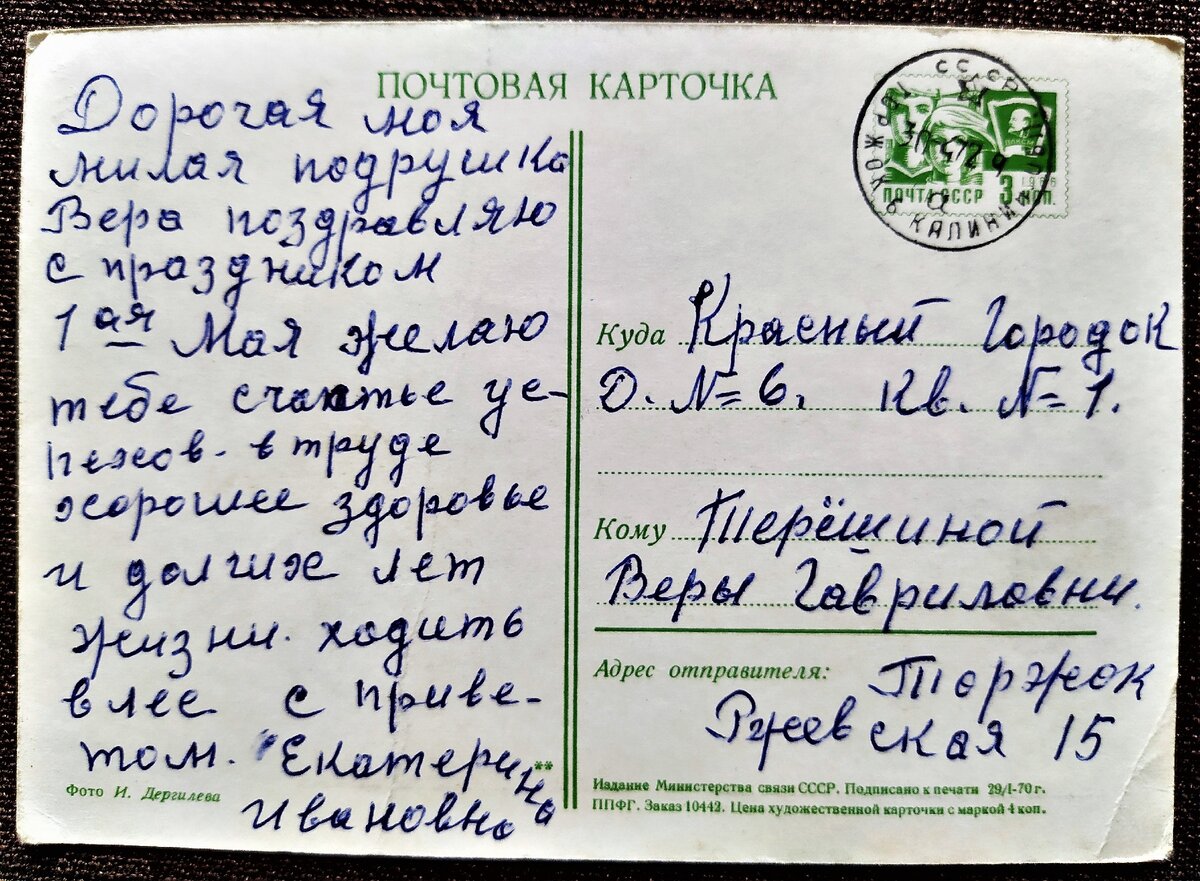 ПОЧТОВАЯ КАРТОЧКА
Дорогая моя
милая подрушка
Вера поздравляю
с праздником
1 ая Мая желаю
тебе счастье ус-
пехов. в труде
хорошее здоровье
и долгих лет
жизни. ходить
в лес с приве-
том. Екатерина
Ивановна
Фото И. Дергилева
**
СССР
ТОРЖОК
КАЛИНИН
ПОЧТА СССР
1966
3 КОП.
Куда Красный Городок
Д. № 6. Кв. № 1.
Кому Терёшиной
Веры Гавриловни.
Адрес отправителя: Торжок
Ржевская 15
Издание Министерства связи СССР. Подписано к печати 29/I-70 г.
ППФГ. Заказ 10442. Цена художественной карточки с маркой 4 коп.